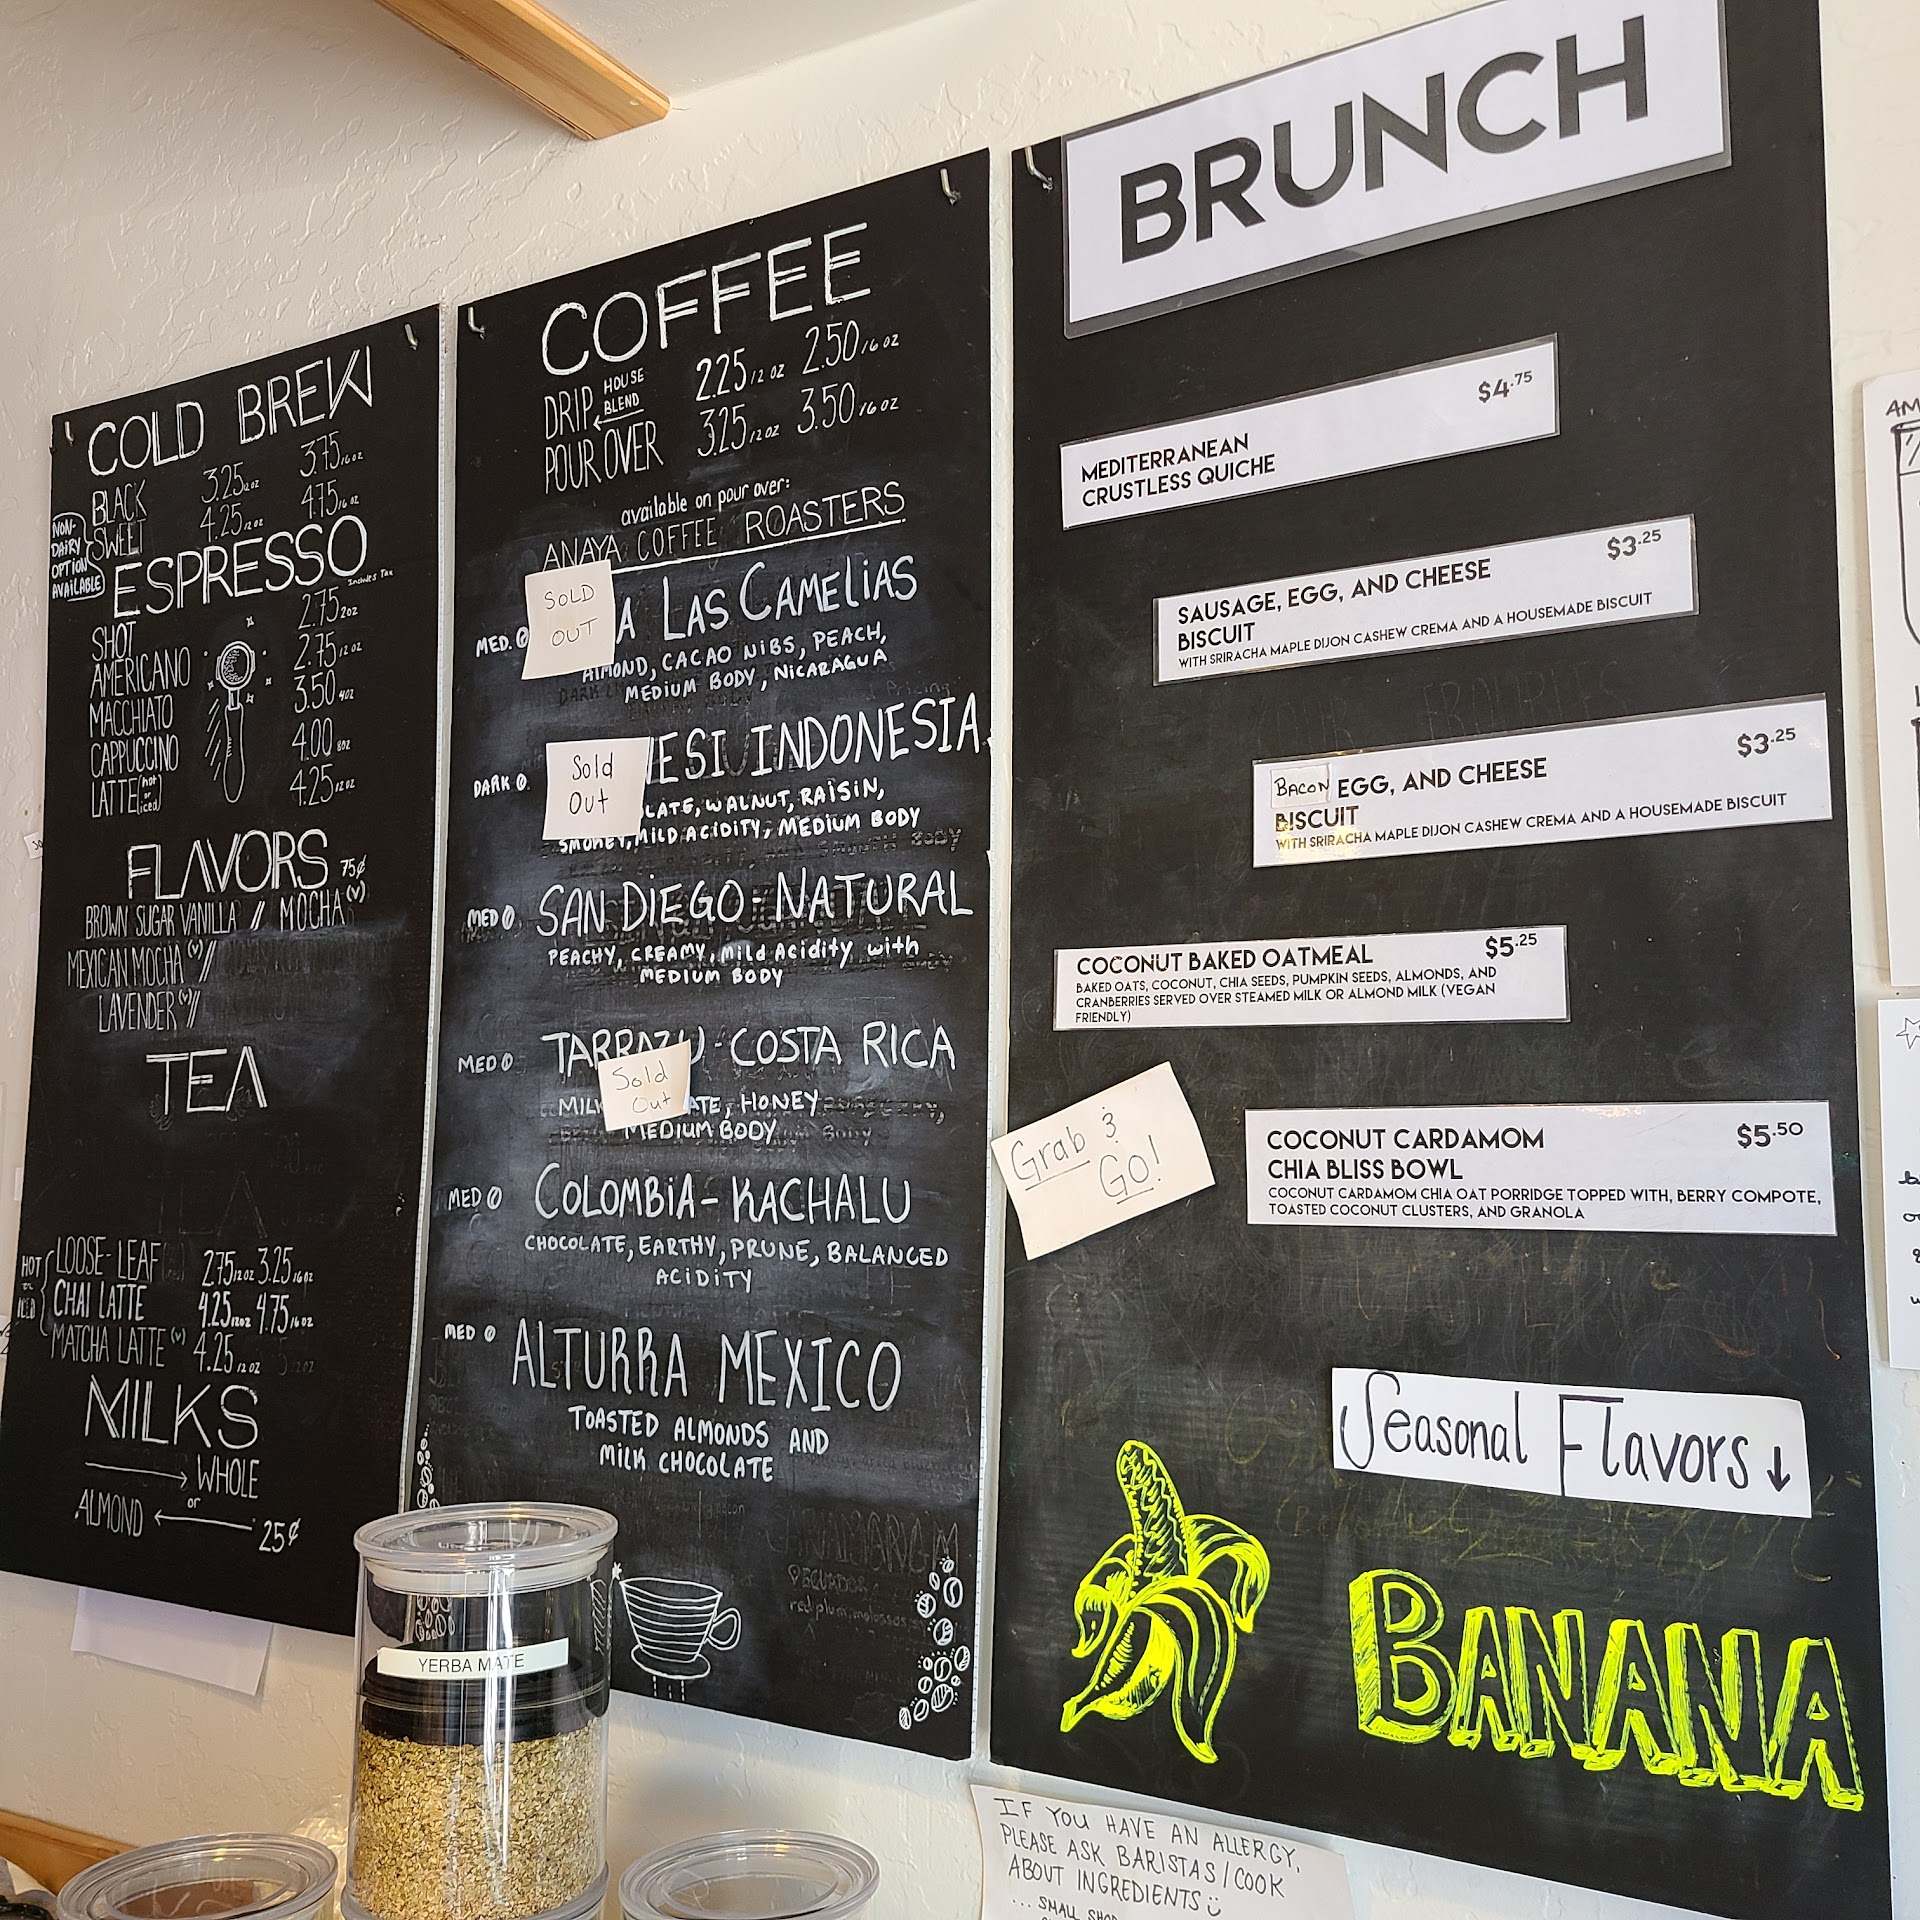 COLD BREW
BLACK 3.25 12 OZ 3.75 16 OZ
SWEET 4.25 12 OZ 4.75 16 OZ
NON-
DAIRY
OPTION
AVAILABLE
ESPRESSO
Includes Tax
SHOT 2.75 2 OZ
AMERICANO 2.75 12 OZ
MACCHIATO 3.50 4 OZ
CAPPUCCINO 4.00 8 OZ
LATTE (hot or iced) 4.25 12 OZ
FLAVORS 75¢
BROWN SUGAR VANILLA // MOCHA (V)
MEXICAN MOCHA (V) //
LAVENDER (V) //
TEA
HOT
ICED
LOOSE-LEAF 2.75 12 OZ 3.25 16 OZ
CHAI LATTE 4.25 12 OZ 4.75 16 OZ
MATCHA LATTE (V) 4.25 12 OZ
MILKS
→ WHOLE
or
ALMOND ← 25¢
COFFEE
DRIP HOUSE BLEND 2.25 12 OZ 2.50 16 OZ
POUR OVER 3.25 12 OZ 3.50 16 OZ
available on pour over:
ANAYA COFFEE ROASTERS
SOLD
OUT
MED. A LAS CAMELIAS
ALMOND, CACAO NIBS, PEACH,
MEDIUM BODY, NICARAGUA
Sold
Out
DARK ESI INDONESIA
LATE, WALNUT, RAISIN,
SMOKEY, MILD ACIDITY, MEDIUM BODY
MED SAN DIEGO - NATURAL
PEACHY, CREAMY, Mild Acidity with
MEDIUM BODY
MED TARRAZU - COSTA RICA
Sold
Out
MILK ATE, HONEY
MEDIUM BODY
MED COLOMBIA - KACHALU
CHOCOLATE, EARTHY, PRUNE, BALANCED
ACIDITY
MED ALTURRA MEXICO
TOASTED ALMONDS AND
MILK CHOCOLATE
YERBA MATE
BRUNCH
$4.75
MEDITERRANEAN
CRUSTLESS QUICHE
$3.25
SAUSAGE, EGG, AND CHEESE
BISCUIT
WITH SRIRACHA MAPLE DIJON CASHEW CREMA AND A HOUSEMADE BISCUIT
$3.25
BACON EGG, AND CHEESE
BISCUIT
WITH SRIRACHA MAPLE DIJON CASHEW CREMA AND A HOUSEMADE BISCUIT
COCONUT BAKED OATMEAL $5.25
BAKED OATS, COCONUT, CHIA SEEDS, PUMPKIN SEEDS, ALMONDS, AND
CRANBERRIES SERVED OVER STEAMED MILK OR ALMOND MILK (VEGAN
FRIENDLY)
Grab &
GO!
COCONUT CARDAMOM $5.50
CHIA BLISS BOWL
COCONUT CARDAMOM CHIA OAT PORRIDGE TOPPED WITH, BERRY COMPOTE,
TOASTED COCONUT CLUSTERS, AND GRANOLA
Seasonal Flavors ↓
BANANA
IF YOU HAVE AN ALLERGY,
PLEASE ASK BARISTAS/COOK
ABOUT INGREDIENTS
... SMALL